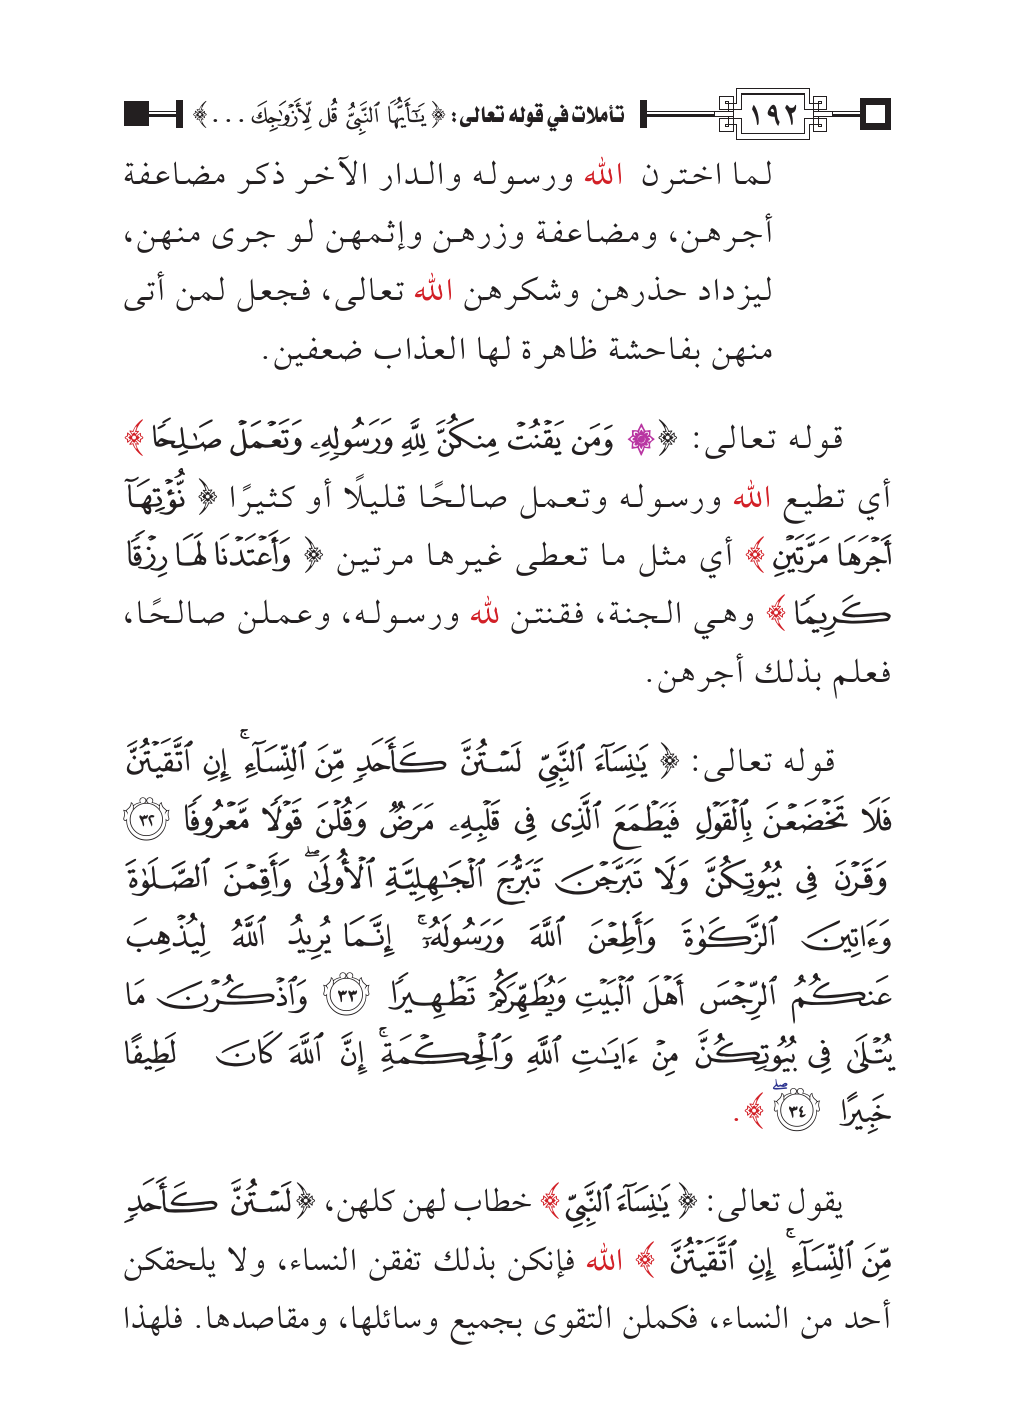 ١٩٢
تأملات في قوله تعالى: ﴿ يَٰٓأَيُّهَا ٱلنَّبِىُّ قُل لِّأَزْوَٰجِكَ . . . ﴾
لما اخترن الله ورسوله والدار الآخر ذكر مضاعفة
أجرهن، ومضاعفة وزرهن وإثمهن لو جرى منهن،
ليزداد حذرهن وشكرهن الله تعالى، فجعل لمن أتى
منهن بفاحشة ظاهرة لها العذاب ضعفين.
قوله تعالى: ﴿۞ وَمَن يَقْنُتْ مِنكُنَّ لِلَّهِ وَرَسُولِهِۦ وَتَعْمَلْ صَٰلِحًا ﴾
أي تطيع الله ورسوله وتعمل صالحًا قليلًا أو كثيرًا ﴿ نُّؤْتِهَآ
أَجْرَهَا مَرَّتَيْنِ ﴾ أي مثل ما تعطى غيرها مرتين ﴿ وَأَعْتَدْنَا لَهَا رِزْقًا
كَرِيمًا ﴾ وهي الجنة، فقنتن لله ورسوله، وعملن صالحًا،
فعلم بذلك أجرهن.
قوله تعالى: ﴿ يَٰنِسَآءَ ٱلنَّبِىِّ لَسْتُنَّ كَأَحَدٍ مِّنَ ٱلنِّسَآءِ ۚ إِنِ ٱتَّقَيْتُنَّ
فَلَا تَخْضَعْنَ بِٱلْقَوْلِ فَيَطْمَعَ ٱلَّذِى فِى قَلْبِهِۦ مَرَضٌ وَقُلْنَ قَوْلًا مَّعْرُوفًا ٣٢
وَقَرْنَ فِى بُيُوتِكُنَّ وَلَا تَبَرَّجْنَ تَبَرُّجَ ٱلْجَٰهِلِيَّةِ ٱلْأُولَىٰ ۖ وَأَقِمْنَ ٱلصَّلَوٰةَ
وَءَاتِينَ ٱلزَّكَوٰةَ وَأَطِعْنَ ٱللَّهَ وَرَسُولَهُۥٓ ۚ إِنَّمَا يُرِيدُ ٱللَّهُ لِيُذْهِبَ
عَنكُمُ ٱلرِّجْسَ أَهْلَ ٱلْبَيْتِ وَيُطَهِّرَكُمْ تَطْهِيرًا ٣٣ وَٱذْكُرْنَ مَا
يُتْلَىٰ فِى بُيُوتِكُنَّ مِنْ ءَايَٰتِ ٱللَّهِ وَٱلْحِكْمَةِ ۚ إِنَّ ٱللَّهَ كَانَ لَطِيفًا
خَبِيرًا ٣٤ ۖ ﴾.
يقول تعالى: ﴿ يَٰنِسَآءَ ٱلنَّبِىِّ ﴾ خطاب لهن كلهن، ﴿ لَسْتُنَّ كَأَحَدٍ
مِّنَ ٱلنِّسَآءِ ۚ إِنِ ٱتَّقَيْتُنَّ ﴾ الله فإنكن بذلك تفقن النساء، ولا يلحقكن
أحد من النساء، فكملن التقوى بجميع وسائلها، ومقاصدها. فلهذا